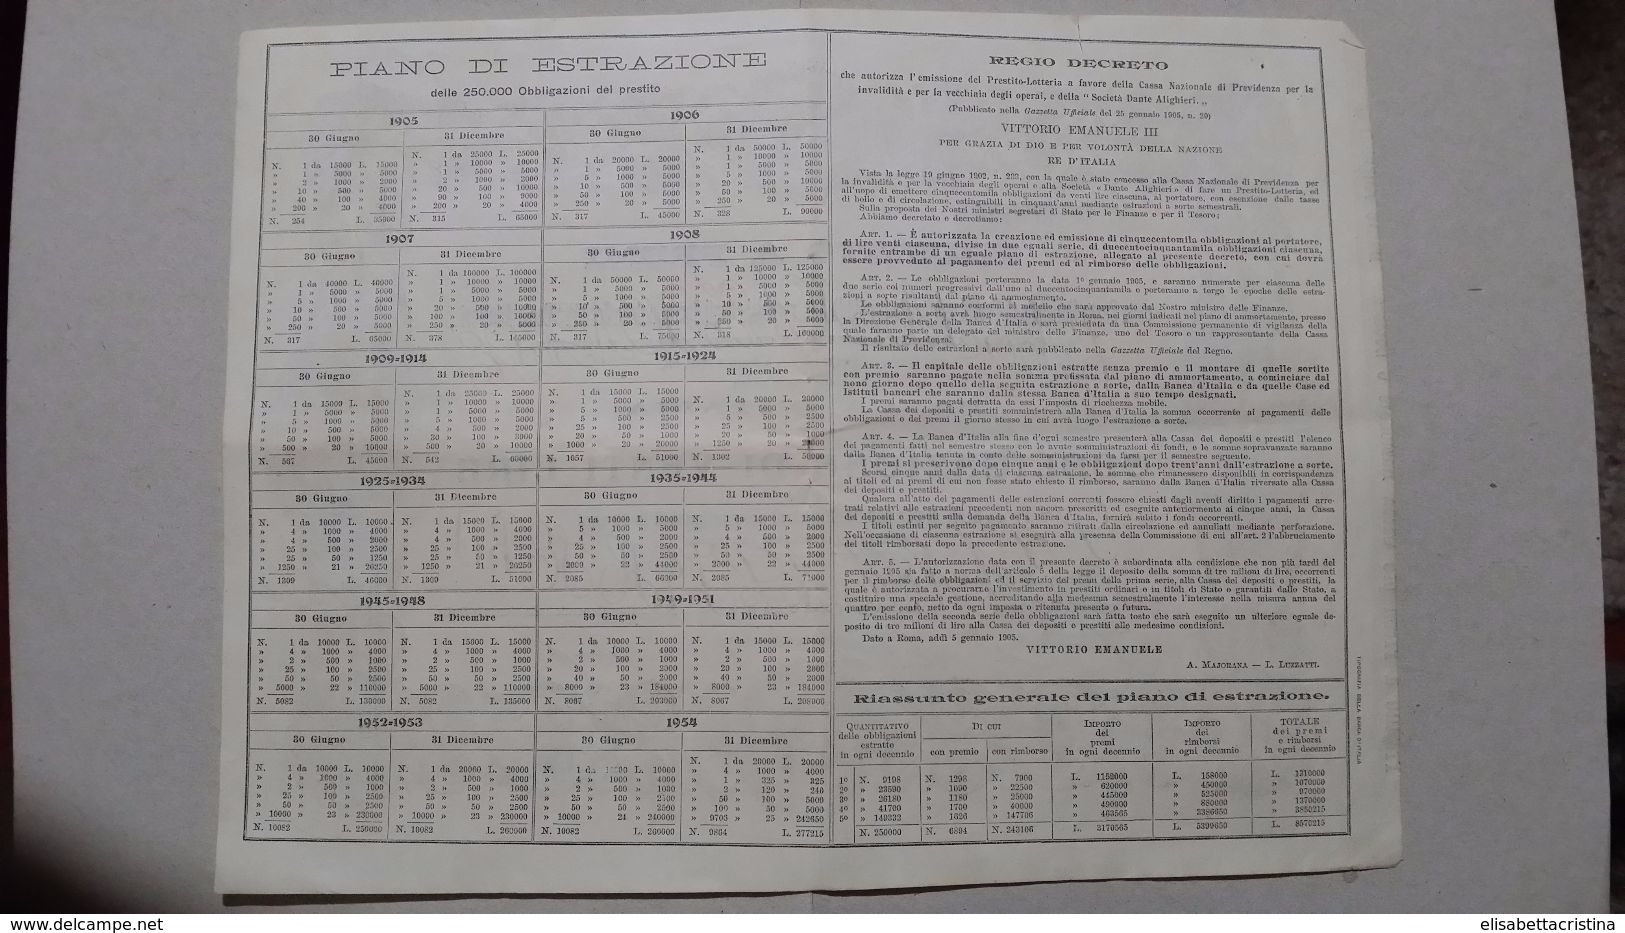 PIANO DI ESTRAZIONE
delle 250.000 Obbligazioni del prestito
1905
30 Giugno
N. 1 da 15000 L. 15000
» 1 » 5000 » 5000
» 2 » 1000 » 2000
» 10 » 500 » 5000
» 40 » 100 » 4000
» 200 » 20 » 4000
N. 254 L. 35000
31 Dicembre
N. 1 da 25000 L. 25000
» 1 » 10000 » 10000
» 1 » 5000 » 5000
» 2 » 1000 » 2000
» 20 » 500 » 10000
» 90 » 100 » 9000
» 200 » 20 » 4000
N. 315 L. 65000
1906
30 Giugno
N. 1 da 20000 L. 20000
» 1 » 5000 » 5000
» 5 » 1000 » 5000
» 10 » 500 » 5000
» 50 » 100 » 5000
» 250 » 20 » 5000
N. 317 L. 45000
31 Dicembre
N. 1 da 50000 L. 50000
» 1 » 10000 » 10000
» 1 » 5000 » 5000
» 5 » 1000 » 5000
» 20 » 500 » 10000
» 50 » 100 » 5000
» 250 » 20 » 5000
N. 328 L. 90000
1907
30 Giugno
N. 1 da 40000 L. 40000
» 1 » 5000 » 5000
» 5 » 1000 » 5000
» 10 » 500 » 5000
» 50 » 100 » 5000
» 250 » 20 » 5000
N. 317 L. 65000
31 Dicembre
N. 1 da 100000 L. 100000
» 1 » 10000 » 10000
» 1 » 5000 » 5000
» 5 » 1000 » 5000
» 20 » 500 » 10000
» 100 » 100 » 10000
» 250 » 20 » 5000
N. 378 L. 145000
1908
30 Giugno
N. 1 da 50000 L. 50000
» 1 » 5000 » 5000
» 5 » 1000 » 5000
» 10 » 500 » 5000
» 50 » 100 » 5000
» 250 » 20 » 5000
N. 317 L. 75000
31 Dicembre
N. 1 da 125000 L. 125000
» 1 » 10000 » 10000
» 1 » 5000 » 5000
» 5 » 1000 » 5000
» 10 » 500 » 5000
» 50 » 100 » 5000
» 250 » 20 » 5000
N. 318 L. 160000
1909-1914
30 Giugno
N. 1 da 15000 L. 15000
» 1 » 5000 » 5000
» 5 » 1000 » 5000
» 10 » 500 » 5000
» 50 » 100 » 5000
» 500 » 20 » 10000
N. 567 L. 45000
31 Dicembre
N. 1 da 25000 L. 25000
» 1 » 10000 » 10000
» 1 » 5000 » 5000
» 5 » 1000 » 5000
» 4 » 500 » 2000
» 30 » 100 » 3000
» 500 » 20 » 10000
N. 542 L. 60000
1915-1924
30 Giugno
N. 1 da 15000 L. 15000
» 1 » 5000 » 5000
» 5 » 1000 » 5000
» 5 » 500 » 2500
» 25 » 100 » 2500
» 20 » 50 » 1000
» 1000 » 20 » 20000
N. 1057 L. 51000
31 Dicembre
N. 1 da 20000 L. 20000
» 1 » 5000 » 5000
» 5 » 500 » 2500
» 25 » 100 » 2500
» 20 » 50 » 1000
» 1250 » 20 »
N. 1302 L.
1925-1934
30 Giugno
N. 1 da 10000 L. 10000
» 4 » 1000 » 4000
» 4 » 500 » 2000
» 25 » 100 » 2500
» 25 » 50 » 1250
» 1250 » 21 » 26250
N. 1309 L. 46000
31 Dicembre
N. 1 da 15000 L. 15000
» 4 » 1000 » 4000
» 4 » 500 » 2000
» 25 » 100 » 2500
» 25 » 50 » 1250
» 1250 » 21 » 26250
N. 1309 L. 51000
1935-1944
30 Giugno
N. 1 da 10000 L. 10000
» 5 » 1000 » 5000
» 4 » 500 » 2000
» 25 » 100 » 2500
» 50 » 50 » 2500
» 2000 » 22 » 44000
N. 2085 L. 66000
31 Dicembre
N. 1 da 15000 L. 15000
» 5 » 1000 » 5000
» 4 » 500 » 2000
» 25 » 100 » 2500
» 50 » 50 » 2500
» 2000 » 22 » 44000
N. 2085 L. 71000
1945-1948
30 Giugno
N. 1 da 10000 L. 10000
» 4 » 1000 » 4000
» 2 » 500 » 1000
» 25 » 100 » 2500
» 50 » 50 » 2500
» 5000 » 22 » 110000
N. 5082 L. 130000
31 Dicembre
N. 1 da 15000 L. 15000
» 4 » 1000 » 4000
» 2 » 500 » 1000
» 25 » 100 » 2500
» 50 » 50 » 2500
» 5000 » 22 » 110000
N. 5082 L. 135000
1949-1951
30 Giugno
N. 1 da 10000 L. 10000
» 4 » 1000 » 4000
» 2 » 500 » 1000
» 20 » 100 » 2000
» 40 » 50 » 2000
» 8000 » 23 » 184000
N. 8067 L. 203000
31 Dicembre
N. 1 da 15000 L. 15000
» 4 » 1000 » 4000
» 2 » 500 » 1000
» 20 » 100 » 2000
» 40 » 50 » 2000
» 8000 » 23 » 184000
N. 8067 L. 208000
1952-1953
30 Giugno
N. 1 da 10000 L. 10000
» 4 » 1000 » 4000
» 2 » 500 » 1000
» 25 » 100 » 2500
» 50 » 50 » 2500
» 10000 » 23 » 230000
N. 10082 L. 250000
31 Dicembre
N. 1 da 20000 L. 20000
» 4 » 1000 » 4000
» 2 » 500 » 1000
» 25 » 100 » 2500
» 50 » 50 » 2500
» 10000 » 23 » 230000
N. 10082 L. 260000
1954
30 Giugno
N. 1 da 10000 L. 10000
» 4 » 1000 » 4000
» 2 » 500 » 1000
» 25 » 100 » 2500
» 50 » 50 » 2500
» 10000 » 24 » 240000
N. 10082 L. 260000
31 Dicembre
N. 1 da 20000 L. 20000
» 4 » 1000 » 4000
» 1 » 325 » 325
» 2 » 120 » 240
» 50 » 100 » 5000
» 100 » 50 » 5000
» 9706 » 25 » 242650
N. 9864 L. 277215
REGIO DECRETO
che autorizza l'emissione del Prestito-Lotteria a favore della Cassa Nazionale di Previdenza per la
invalidità e per la vecchiaia degli operai, e della “ Società Dante Alighieri. „
(Pubblicato nella Gazzetta Ufficiale del 25 gennaio 1905, n. 20)
VITTORIO EMANUELE III
PER GRAZIA DI DIO E PER VOLONTÀ DELLA NAZIONE
RE D'ITALIA
Vista la legge 19 giugno 1902, n. 203, con la quale è stato concesso alla Cassa Nazionale di Previdenza per
la invalidità e per la vecchiaia degli operai e alla Società « Dante Alighieri » di fare un Prestito-Lotteria, ed
all'uopo di emettere cinquecentomila obbligazioni da venti lire ciascuna, al portatore, con esenzione dalle tasse
di bollo e di circolazione, estinguibili in cinquant'anni mediante estrazioni a sorte semestrali.
Sulla proposta dei Nostri ministri segretari di Stato per le Finanze e per il Tesoro;
Abbiamo decretato e decretiamo:
ART. 1. — È autorizzata la creazione ed emissione di cinquecentomila obbligazioni al portatore,
di lire venti ciascuna, divise in due eguali serie, di duecentocinquantamila obbligazioni ciascuna,
fornite entrambe di un eguale piano di estrazione, allegato al presente decreto, con cui dovrà
essere provveduto al pagamento dei premi ed al rimborso delle obbligazioni.
ART. 2. — Le obbligazioni porteranno la data 1º gennaio 1905, e saranno numerate per ciascuna delle
due serie coi numeri progressivi dall'uno al duecentocinquantamila e porteranno a tergo le epoche delle estra-
zioni a sorte risultanti dal piano di ammortamento.
Le obbligazioni saranno conformi al modello che sarà approvato dal Nostro ministro delle Finanze.
L'estrazione a sorte avrà luogo semestralmente in Roma, nei giorni indicati nel piano di ammortamento, presso
la Direzione Generale della Banca d'Italia e sarà presieduta da una Commissione permanente di vigilanza della
quale faranno parte un delegato del ministro delle Finanze, uno del Tesoro e un rappresentante della Cassa
Nazionale di Previdenza.
Il risultato delle estrazioni a sorte sarà pubblicato nella Gazzetta Ufficiale del Regno.
ART. 3. — Il capitale delle obbligazioni estratte senza premio e il montare di quelle sortite
con premio saranno pagate nella somma prefissata dal piano di ammortamento, a cominciare dal
nono giorno dopo quello della seguita estrazione a sorte, dalla Banca d'Italia e da quelle Case ed
Istituti bancari che saranno dalla stessa Banca d'Italia a suo tempo designati.
I premi saranno pagati detratta da essi l'imposta di ricchezza mobile.
La Cassa dei depositi e prestiti somministrerà alla Banca d'Italia la somma occorrente ai pagamenti delle
obbligazioni o dei premi il giorno stesso in cui avrà luogo l'estrazione a sorte.
ART. 4. — La Banca d'Italia alla fine d'ogni semestre presenterà alla Cassa dei depositi e prestiti l'elenco
dei pagamenti fatti nel semestre stesso con le avute somministrazioni di fondi, e le somme sopravanzate saranno
dalla Banca d'Italia tenute in conto delle somministrazioni da farsi per il semestre seguente.
I premi si prescrivono dopo cinque anni e le obbligazioni dopo trent'anni dall'estrazione a sorte.
Scorsi cinque anni dalla data di ciascuna estrazione, le somme che rimanessero disponibili in corrispondenza
ai titoli ed ai premi di cui non fosse stato chiesto il rimborso, saranno dalla Banca d'Italia riversate alla Cassa
dei depositi e prestiti.
Qualora all'atto dei pagamenti delle estrazioni correnti fossero chiesti dagli aventi diritto i pagamenti arre-
trati relativi alle estrazioni precedenti non ancora prescritti ed eseguite anteriormente ai cinque anni, la Cassa
dei depositi e prestiti sulla domanda della Banca d'Italia, fornirà subito i fondi occorrenti.
I titoli estinti per seguito pagamento saranno ritirati dalla circolazione ed annullati mediante perforazione.
Nell'occasione di ciascuna estrazione si eseguirà alla presenza della Commissione di cui all'art. 2 l'abbruciamento
dei titoli rimborsati dopo la precedente estrazione.
ART. 5. — L'autorizzazione data con il presente decreto è subordinata alla condizione che non più tardi del
gennaio 1905 sia fatto a norma dell'articolo 5 della legge il deposito della somma di tre milioni di lire, occorrenti
per il rimborso delle obbligazioni ed il servizio dei premi della prima serie, alla Cassa dei depositi e prestiti, la
quale è autorizzata a procurarne l'investimento in prestiti ordinari o in titoli di Stato o garantiti dallo Stato, a
costituire una speciale gestione, accreditando alla medesima semestralmente l'interesse nella misura annua del
quattro per cento, netto da ogni imposta o ritenuta presente o futura.
L'emissione della seconda serie delle obbligazioni sarà fatta tosto che sarà eseguito un ulteriore eguale de-
posito di tre milioni di lire alla Cassa dei depositi e prestiti alle medesime condizioni.
Dato a Roma, addì 5 gennaio 1905.
VITTORIO EMANUELE
A. MAJORANA — L. LUZZATTI.
Riassunto generale del piano di estrazione.
QUANTITATIVO delle obbligazioni estratte in ogni decennio
DI CUI
con premio con rimborso
IMPORTO dei premi in ogni decennio
IMPORTO dei rimborsi in ogni decennio
TOTALE dei premi e rimborsi in ogni decennio
1º N. 9198 N. 1298 N. 7900 L. 1152000 L. 158000 L. 1310000
2º » 23590 » 1090 » 22500 » 620000 » 450000 » 1070000
3º » 26180 » 1180 » 25000 » 445000 » 525000 » 970000
4º » 41700 » 1700 » 40000 » 490000 » 880000 » 1370000
5º » 149332 » 1626 » 147706 » 463565 » 3386650 » 3850215
N. 250000 N. 6894 N. 243106 L. 3170565 L. 5399650 L. 8570215
TIPOGRAFIA DELLA BANCA D'ITALIA
elisabettacristina